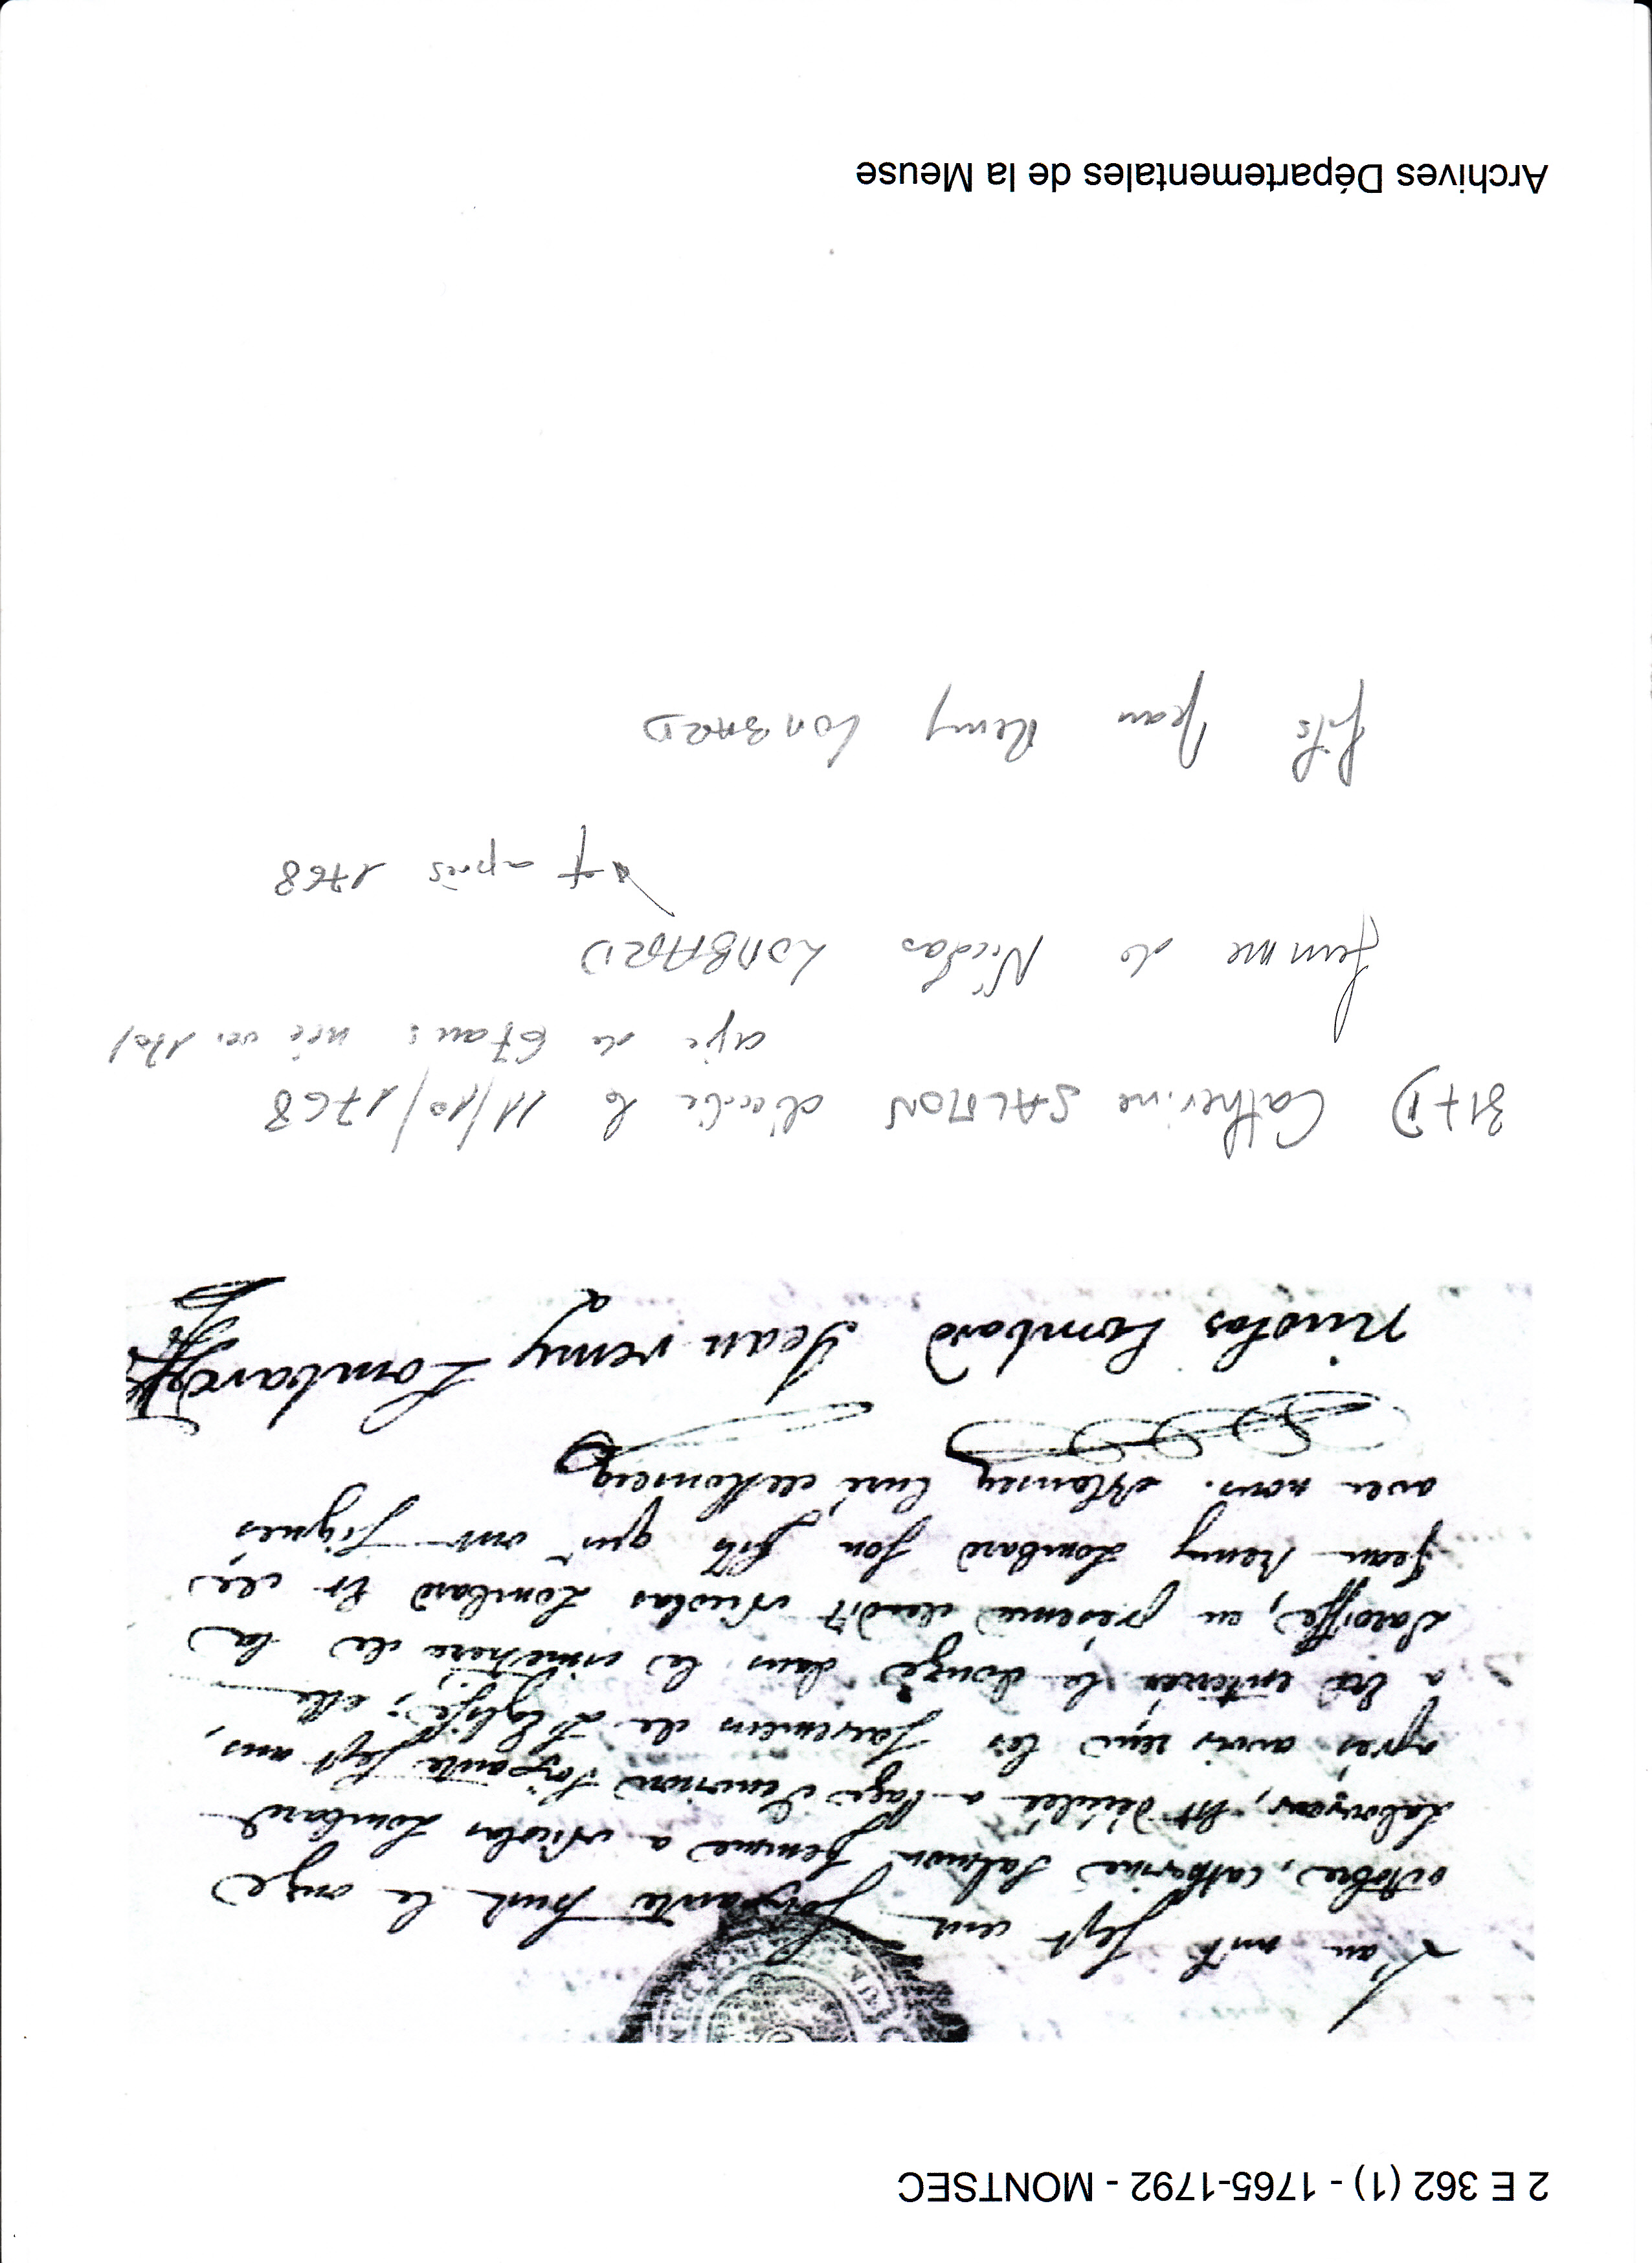 2 E 362 (1) - 1765-1792 - MONTSEC
L'an mil sept cent soixante huit le onze
octobre, catherine Salmon femme a Nicolas Lombard
Laboureur, est décédée a l'age d'environ soixante sept ans,
apres avoir reçu les sacremens de L'Eglise; elle
a été enterrée le douze dans le cimetiere de la
Paroisse, en presence dudit Nicolas Lombard et de
Jean Remy Lombard son fils qui ont signés
avec nous. curé de Monsecq
nicolas Lombard Jean remy Lombard
317 D) Catherine SALMON décédée le 11/10/1768
agée de 67 ans : née ver 1701
femme de Nicolas LOMBARD
† après 1768
fils Jean Remy LOMBARD
Archives Départementales de la Meuse